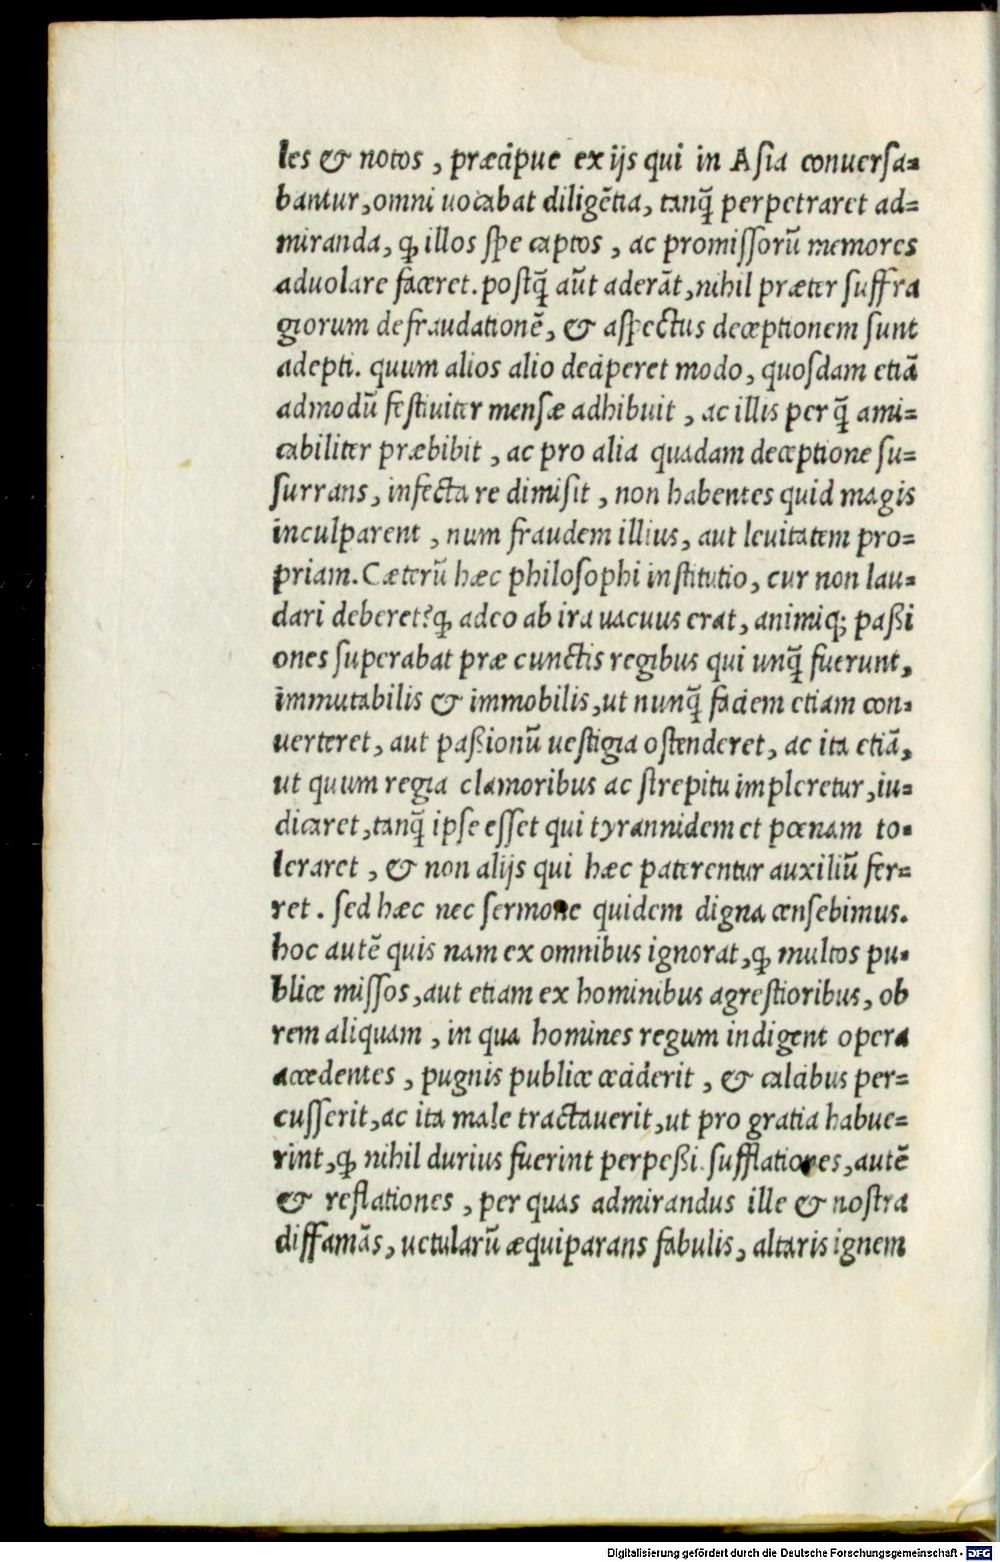 les & notos, præcipue ex ijs qui in Asia conuersa=
bantur, omni uocabat diligẽtia, tanq̃ perpetraret ad=
miranda, ꝙ illos spe captos, ac promissorũ memores
aduolare faceret. postq̃ aũt aderãt, nihil præter suffra
giorum defraudationẽ, & aspectus deceptionem sunt
adepti. quum alios alio deciperet modo, quosdam etiã
admodũ festiuiter mensæ adhibuit, ac illis per q̃ ami=
cabiliter præbibit, ac pro alia quadam deceptione su=
surrans, infecta re dimisit, non habentes quid magis
inculparent, num fraudem illius, aut leuitatem pro=
priam. Cæterũ hæc philosophi institutio, cur non lau=
dari deberet? ꝙ adeo ab ira uacuus erat, animiq; paßi
ones superabat præ cunctis regibus qui unq̃ fuerunt,
immutabilis & immobilis, ut nunq̃ faciem etiam con=
uerteret, aut paßionũ uestigia ostenderet, ac ita etiã,
ut quum regia clamoribus ac strepitu impleretur, iu=
dicaret, tanq̃ ipse esset qui tyrannidem et pœnam to=
leraret, & non alijs qui hæc paterentur auxiliũ fer=
ret. sed hæc nec sermone quidem digna censebimus.
hoc autẽ quis nam ex omnibus ignorat, ꝙ multos pu=
blice missos, aut etiam ex hominibus agrestioribus, ob
rem aliquam, in qua homines regum indigent opera
accedentes, pugnis publice ceciderit, & calcibus per=
cusserit, ac ita male tractauerit, ut pro gratia habue=
rint, ꝙ nihil durius fuerint perpeßi. sufflationes, autẽ
& reflationes, per quas admirandus ille & nostra
diffamãs, uetularũ æquiparans fabulis, altaris ignem
Digitalisierung gefördert durch die Deutsche Forschungsgemeinschaft - DFG